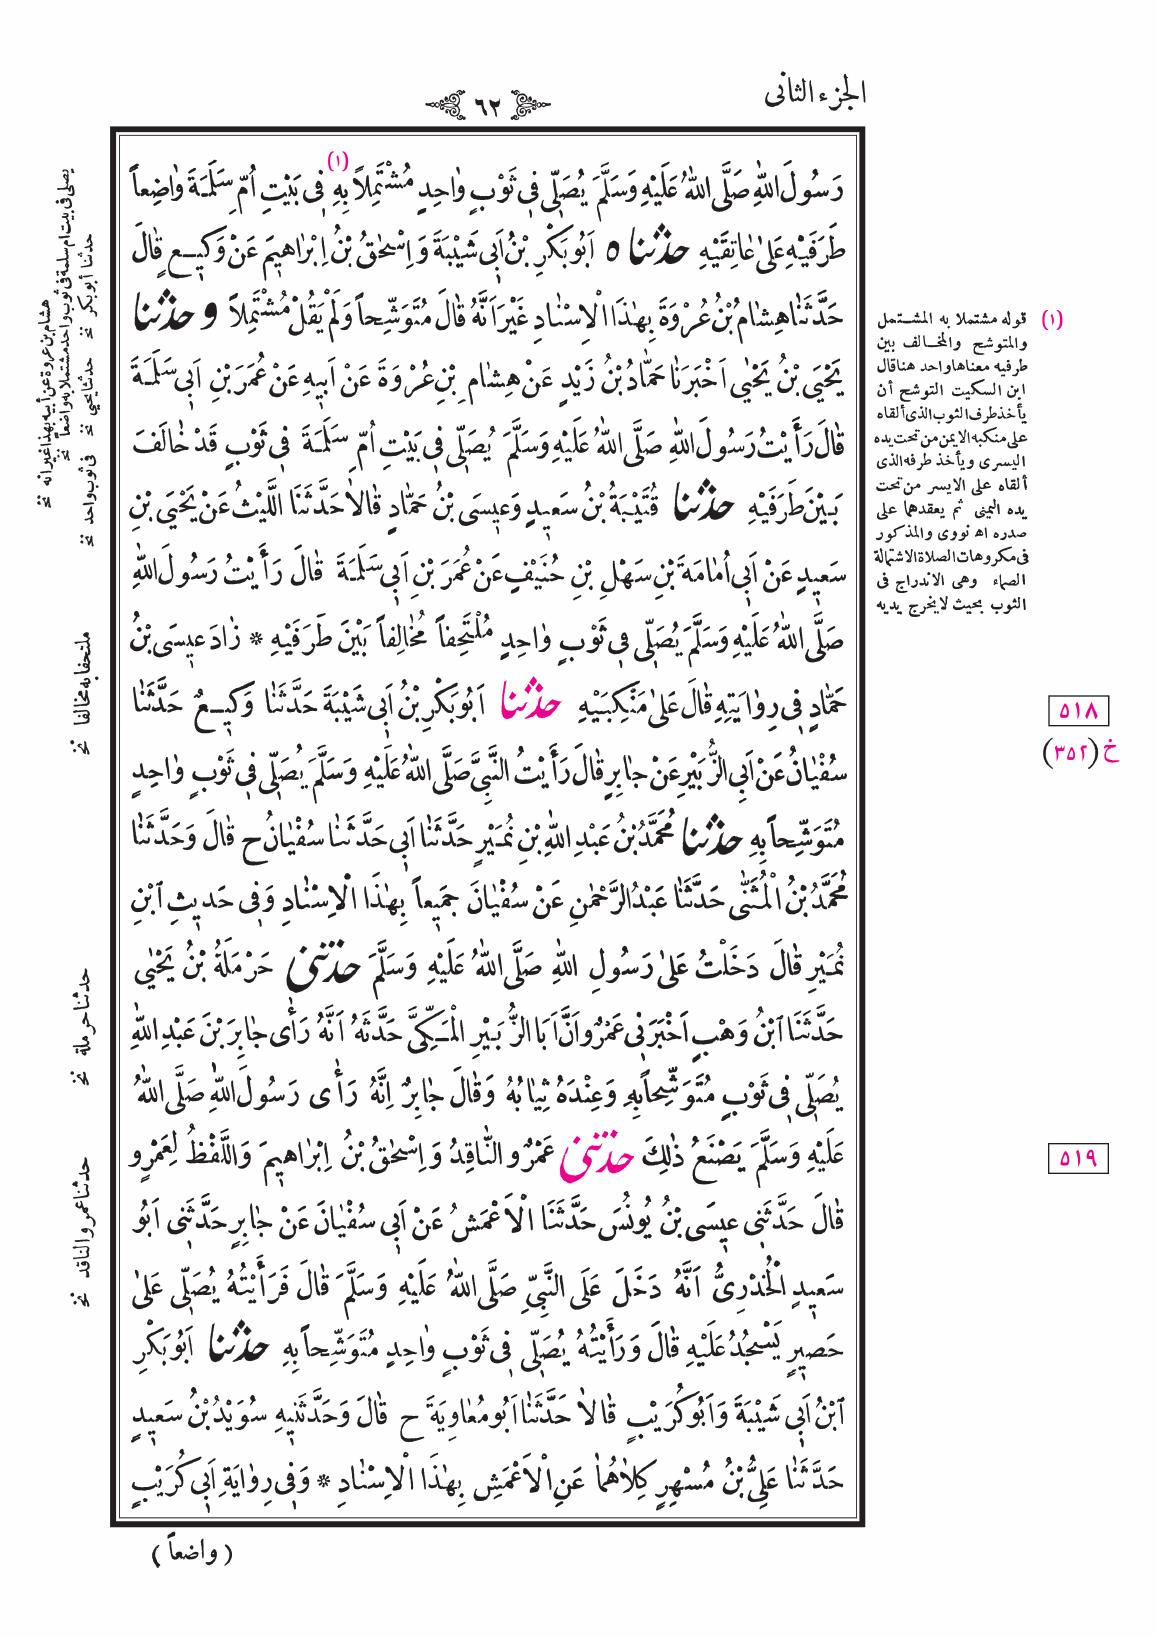 الجزء الثانى
٦٢
رَسُولَ اللّٰهِ صَلَّى اللّٰهُ عَلَيْهِ وَسَلَّمَ يُصَلّٖى فِى ثَوْبٍ وٰاحِدٍ مُشْتَمِلاً بِهِ (١) فِى بَيْتِ اُمِّ سَلَمَةَ وٰاضِعاً
طَرَفَيْهِ عَلىٰ عٰاتِقَيْهِ حدّثنا ٥ اَبُو بَكْرِ بْنُ اَبِى شَيْبَةَ وَ اِسْحٰقُ بْنُ اِبْرٰاهِيمَ عَنْ وَكِيعٍ قٰالَ
حَدَّثَنٰا هِشٰامُ بْنُ عُرْوَةَ بِهٰذَا الْاِسْنٰادِ غَيْرَ اَنَّهُ قٰالَ مُتَوَشِّحاً وَلَمْ يَقُلْ مُشْتَمِلاً و حدّثنا
يَحْيَى بْنُ يَحْيٰى اَخْبَرَنٰا حَمّٰادُ بْنُ زَيْدٍ عَنْ هِشٰامِ بْنِ عُرْوَةَ عَنْ اَبِيهِ عَنْ عُمَرَ بْنِ اَبِى سَلَمَةَ
قٰالَ رَأَيْتُ رَسُولَ اللّٰهِ صَلَّى اللّٰهُ عَلَيْهِ وَسَلَّمَ يُصَلّٖى فِى بَيْتِ اُمِّ سَلَمَةَ فِى ثَوْبٍ قَدْ خٰالَفَ
بَيْنَ طَرَفَيْهِ حدّثنا قُتَيْبَةُ بْنُ سَعِيدٍ وَعِيسَى بْنُ حَمّٰادٍ قٰالاٰ حَدَّثَنَا اللَّيْثُ عَنْ يَحْيَى بْنِ
سَعِيدٍ عَنْ اَبِى اُمٰامَةَ بْنِ سَهْلِ بْنِ حُنَيْفٍ عَنْ عُمَرَ بْنِ اَبِى سَلَمَةَ قٰالَ رَأَيْتُ رَسُولَ اللّٰهِ
صَلَّى اللّٰهُ عَلَيْهِ وَسَلَّمَ يُصَلّٖى فِى ثَوْبٍ وٰاحِدٍ مُلْتَحِفاً مُخٰالِفاً بَيْنَ طَرَفَيْهِ * زٰادَ عِيسَى بْنُ
حَمّٰادٍ فِى رِوٰايَتِهِ قٰالَ عَلىٰ مَنْكِبَيْهِ حدّثنا اَبُو بَكْرِ بْنُ اَبِى شَيْبَةَ حَدَّثَنٰا وَكِيعٌ حَدَّثَنٰا
سُفْيٰانُ عَنْ اَبِى الزُّبَيْرِ عَنْ جٰابِرٍ قٰالَ رَأَيْتُ النَّبِىَّ صَلَّى اللّٰهُ عَلَيْهِ وَسَلَّمَ يُصَلّٖى فِى ثَوْبٍ وٰاحِدٍ
مُتَوَشِّحاً بِهِ حدّثنا مُحَمَّدُ بْنُ عَبْدِ اللّٰهِ بْنِ نُمَيْرٍ حَدَّثَنٰا اَبِى حَدَّثَنٰا سُفْيٰانُ ح قٰالَ وَحَدَّثَنٰا
مُحَمَّدُ بْنُ الْمُثَنّٰى حَدَّثَنٰا عَبْدُ الرَّحْمٰنِ عَنْ سُفْيٰانَ جَمِيعاً بِهٰذَا الْاِسْنٰادِ وَفِى حَدِيثِ ابْنِ
نُمَيْرٍ قٰالَ دَخَلْتُ عَلىٰ رَسُولِ اللّٰهِ صَلَّى اللّٰهُ عَلَيْهِ وَسَلَّمَ حدّثنى حَرْمَلَةُ بْنُ يَحْيٰى
حَدَّثَنَا ابْنُ وَهْبٍ اَخْبَرَنِى عَمْرٌو اَنَّ اَبَا الزُّبَيْرِ الْمَكِّىَّ حَدَّثَهُ اَنَّهُ رَأٰى جٰابِرَ بْنَ عَبْدِ اللّٰهِ
يُصَلّٖى فِى ثَوْبٍ مُتَوَشِّحاً بِهِ وَعِنْدَهُ ثِيٰابُهُ وَقٰالَ جٰابِرٌ اِنَّهُ رَأٰى رَسُولَ اللّٰهِ صَلَّى اللّٰهُ
عَلَيْهِ وَسَلَّمَ يَصْنَعُ ذٰلِكَ حدّثنى عَمْرٌو النّٰاقِدُ وَ اِسْحٰقُ بْنُ اِبْرٰاهِيمَ وَاللَّفْظُ لِعَمْرٍو
قٰالَ حَدَّثَنِى عِيسَى بْنُ يُونُسَ حَدَّثَنَا الْاَعْمَشُ عَنْ اَبِى سُفْيٰانَ عَنْ جٰابِرٍ حَدَّثَنِى اَبُو
سَعِيدٍ الْخُدْرِىُّ اَنَّهُ دَخَلَ عَلَى النَّبِىِّ صَلَّى اللّٰهُ عَلَيْهِ وَسَلَّمَ قٰالَ فَرَأَيْتُهُ يُصَلّٖى عَلىٰ
حَصِيرٍ يَسْجُدُ عَلَيْهِ قٰالَ وَرَأَيْتُهُ يُصَلّٖى فِى ثَوْبٍ وٰاحِدٍ مُتَوَشِّحاً بِهِ حدّثنا اَبُو بَكْرِ
ابْنُ اَبِى شَيْبَةَ وَ اَبُو كُرَيْبٍ قٰالاٰ حَدَّثَنٰا اَبُو مُعٰاوِيَةَ ح قٰالَ وَحَدَّثَنِيهِ سُوَيْدُ بْنُ سَعِيدٍ
حَدَّثَنٰا عَلِىُّ بْنُ مُسْهِرٍ كِلاٰهُمٰا عَنِ الْاَعْمَشِ بِهٰذَا الْاِسْنٰادِ * وَفِى رِوٰايَةِ اَبِى كُرَيْبٍ
( واضعاً )
(١) قوله مشتملا به المشتمل
والمتوشح والمخالف بين
طرفيه معناها واحد هنا قال
ابن السكيت التوشح أن
يأخذ طرف الثوب الذى ألقاه
على منكبه الايمن من تحت يده
اليسرى ويأخذ طرفه الذى
ألقاه على الايسر من تحت
يده اليمنى ثم يعقدهما على
صدره اه نووى والمذكور
فى مكروهات الصلاة الاشتمالة
الصماء وهى الاندراج فى
الثوب بحيث لا يخرج يديه
٥١٨
خ (٣٥٢)
٥١٩
حدثنا أبو بكر نخ حدثنا يحيى نخ فى ثوب واحد نخ
يصلى فى بيت ام سلمة فى ثوب واحد مشتملا به واضعاً نخ
هشام بن عروة عن أبيه بهذا غير انه نخ
ملتحفا به مخالفا نخ
حدثنا حرملة نخ
حدثنا عمرو الناقد نخ